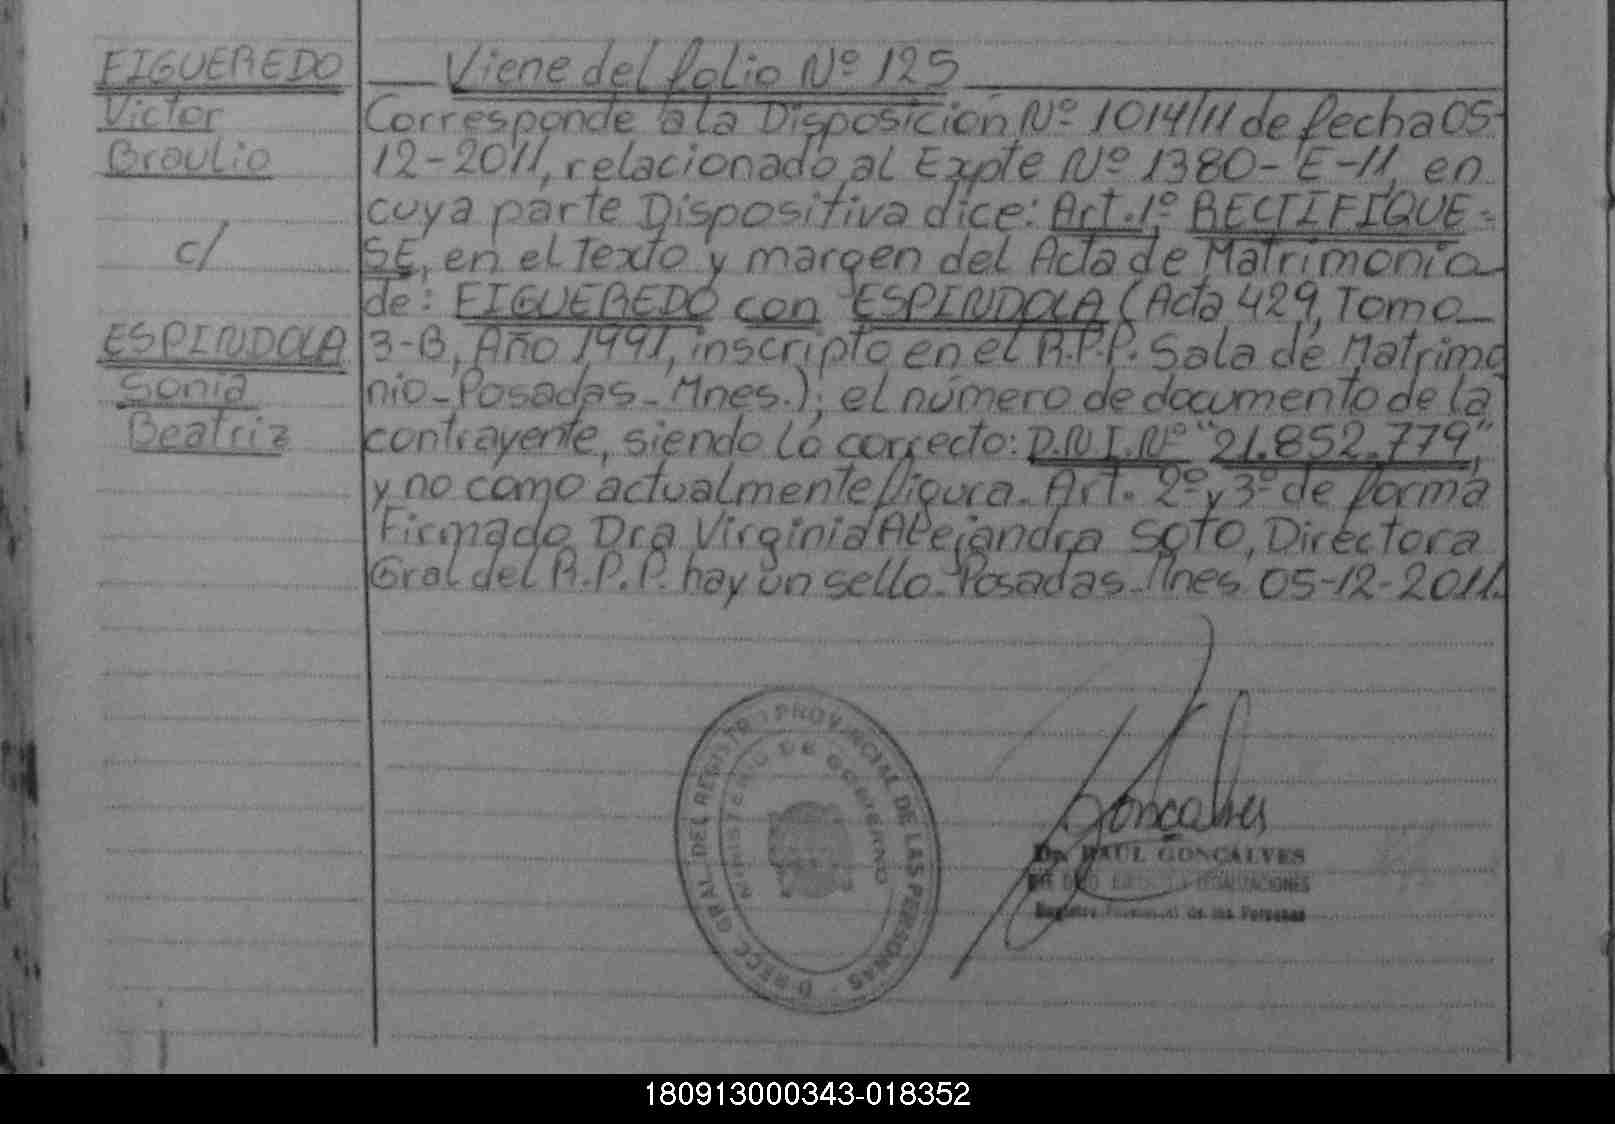 FIGUEREDO
Victor
Braulio
c/
ESPINDOLA
Sonia
Beatriz
Viene del folio Nº 125
Corresponde a la Disposición Nº 1014/11 de fecha 05-
12-2011, relacionado al Expte Nº 1380-E-11, en
cuya parte Dispositiva dice: Art. 1º RECTIFIQUE=
SE, en el Texto y margen del Acta de Matrimonio
de: FIGUEREDO con ESPINDOLA (Acta 429, Tomo
3-B, Año 1991, inscripto en el R.P.P. Sala de Matrimo
nio-Posadas-Mnes.); el número de documento de la
contrayente, siendo lo correcto: D.N.I.Nº "21.852.779",
y no como actualmente figura. Art. 2º y 3º de forma
Firmado Dra Virginia Alejandra SOTO, Directora
Gral del R.P.P. hay un sello-Posadas-Mnes 05-12-2011.
DIRECC. GRAL. DEL REGISTRO PROVINCIAL DE LAS PERSONAS
MINISTERIO DE GOBIERNO
Gonçalves
Dr. RAUL GONCALVES
LEGALIZACIONES
Registro Provincial de las Personas
180913000343-018352